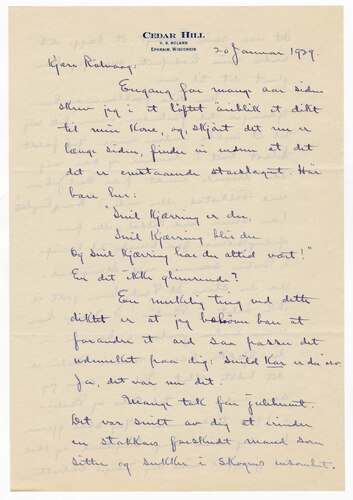 CEDAR HILL
H. R. HOLAND
EPHRAIM, WISCONSIN
20 Januar 1929.
Kjære Rølvaag:
Engang for mange aar siden
skrev jeg i et løftet øieblik et dikt
til min Kone, og, skjønt det nu er
længe siden, finder vi endnu at det
det er enestaaende storslagent. Hør
bare her:
"Snil Kjærring er du,
Snil Kjærring blir du
Og snil Kjærring har du altid vært!"
Er det ikke glimrende?
En merkelig ting ved dette
diktet er at jeg behøver bare at
forandre et ord saa passer det
udmerket paa dig: "Snild Kar er du" osv
Ja, det var nu det.
Mange tak for julehilsnt.
Det var snilt av dig at erindre
en stakkars forskudt mand som
sitter og sukker i Skogens ensomhet.